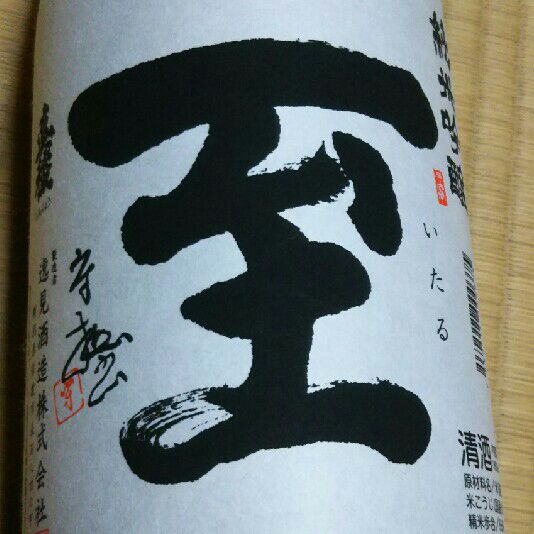 純米吟醸
至
いたる
真稜
製造者
逸見酒造株式会社
清酒
原材料名/米
米こうじ(国
精米歩合/